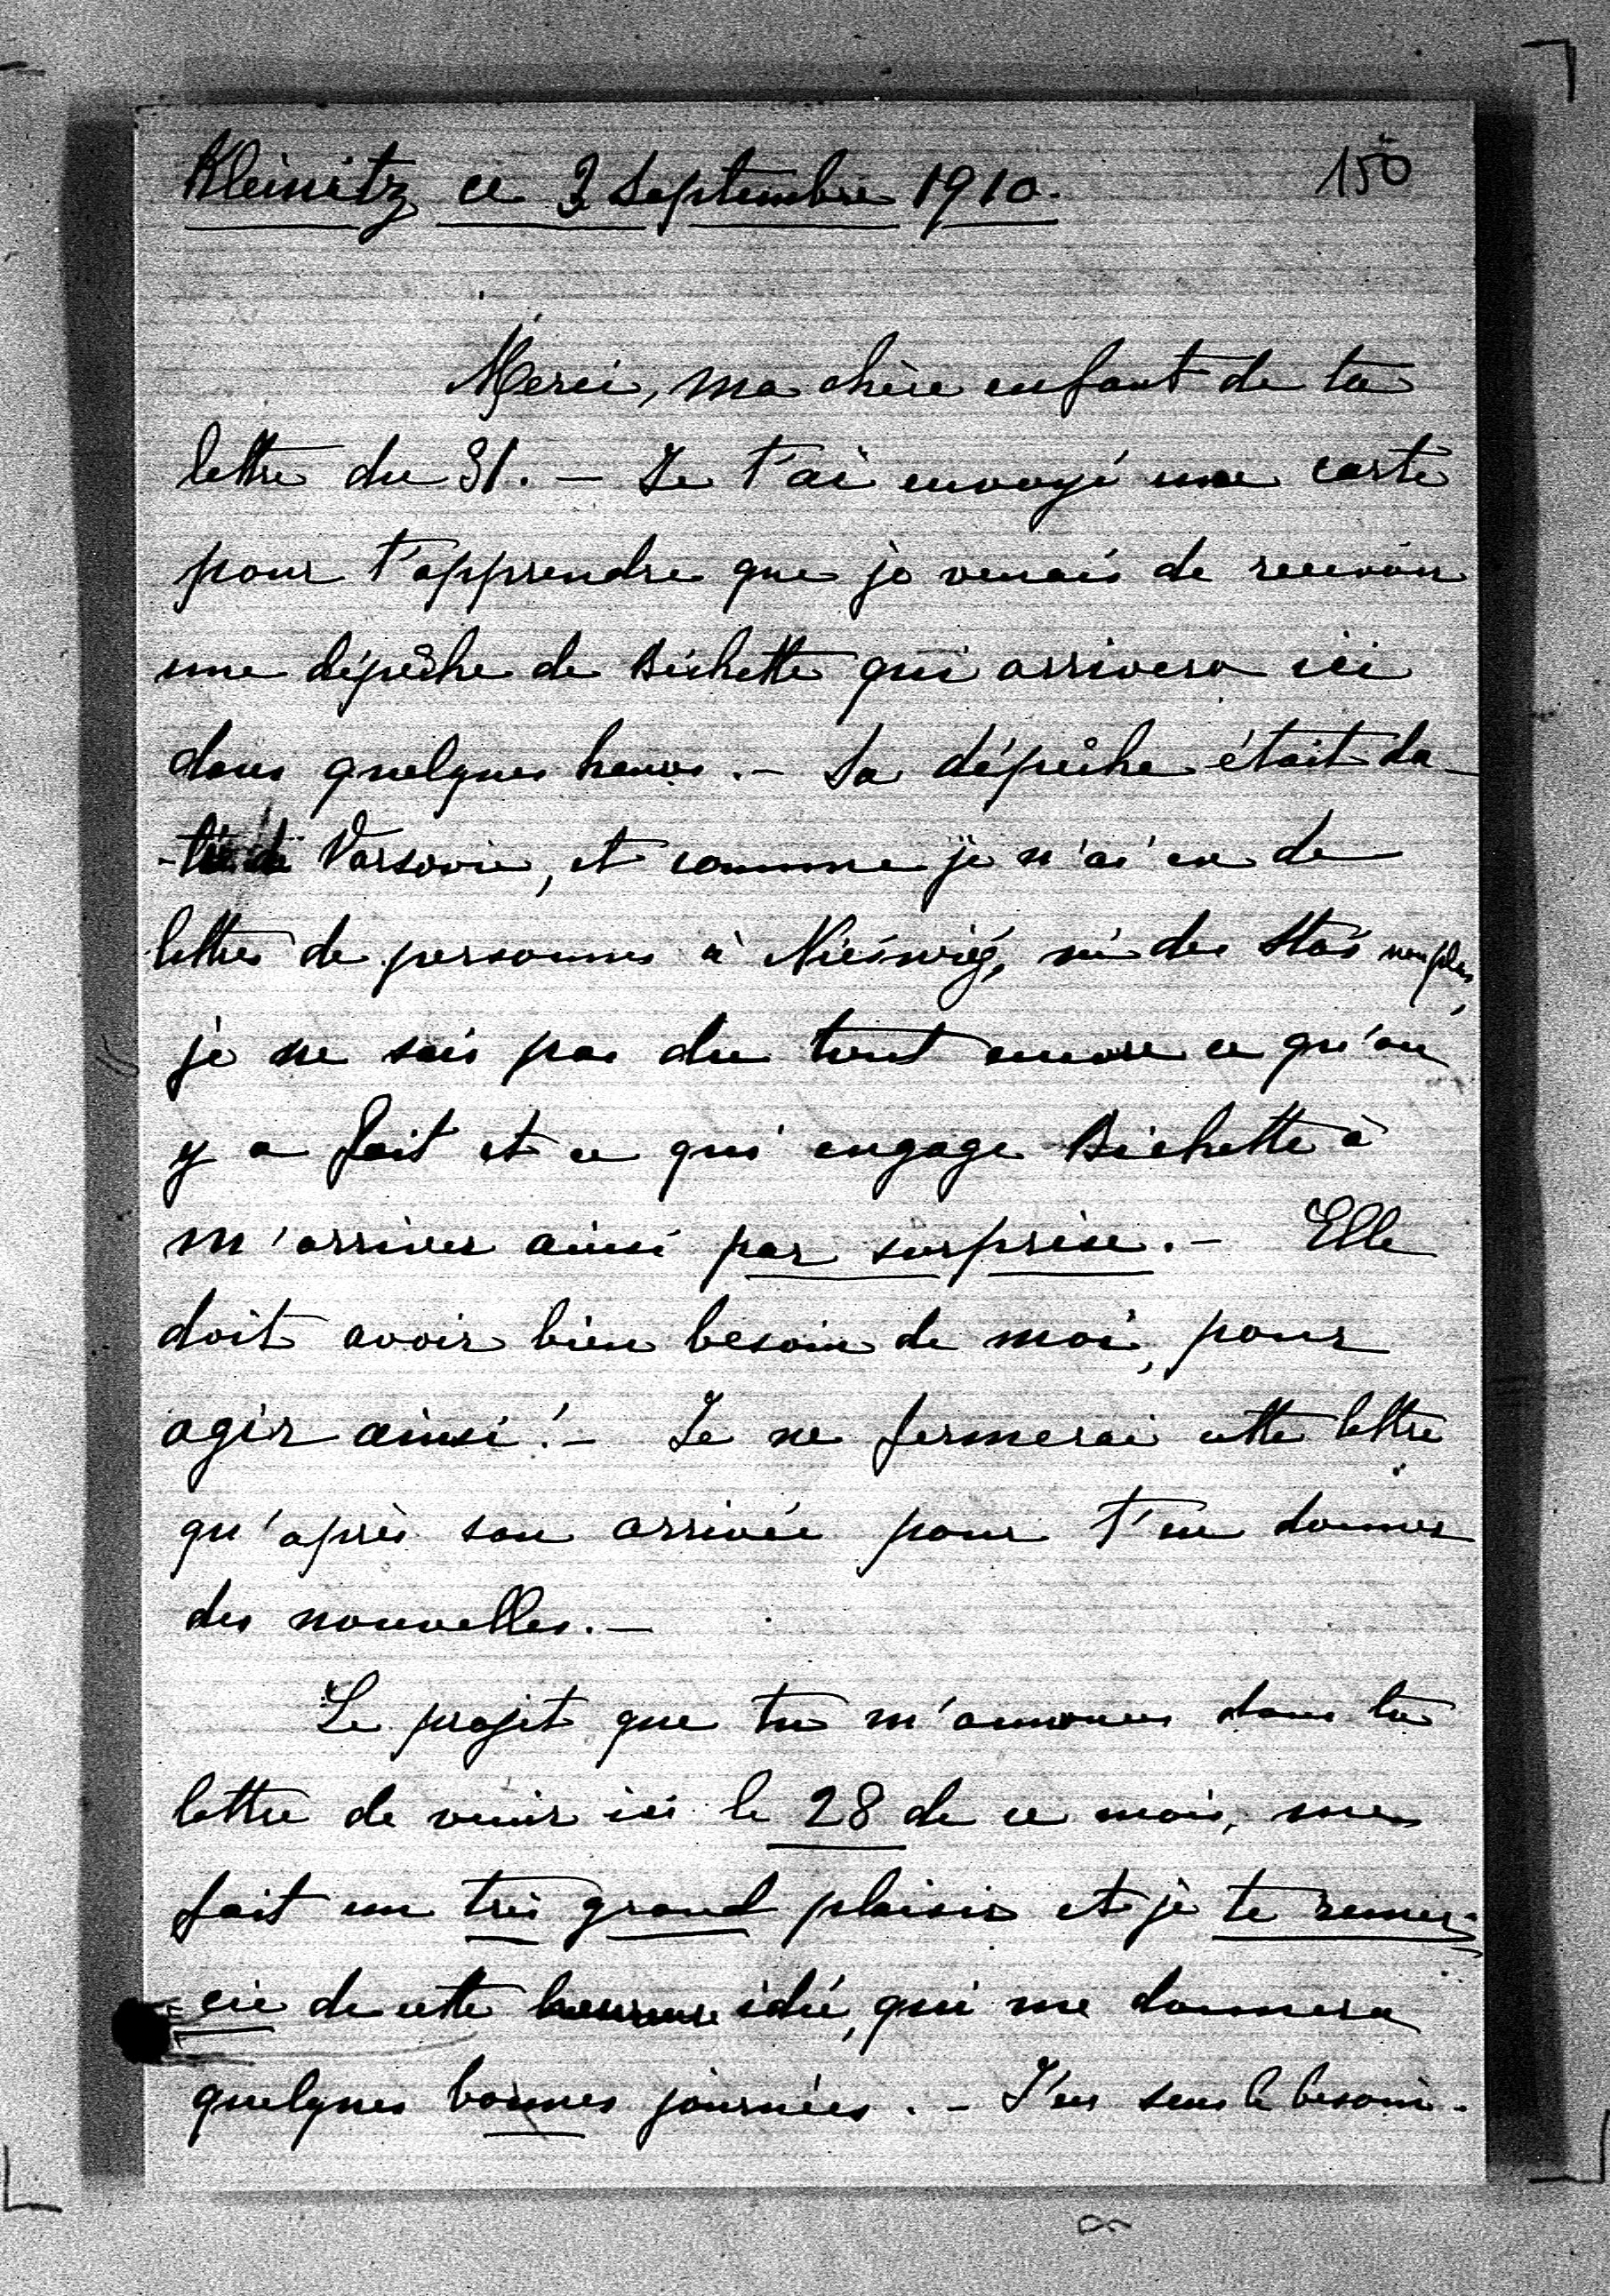 Kleinitz ce 3 Septembre 1910.
150
Merci, ma chère enfant de ta
lettre du 31. — Je t'ai envoyé une carte
pour t'apprendre que je venais de recevoir
une dépêche de Bichette qui arrivera ici
dans quelques heures. — Sa dépêche était da-
-tée de Varsovie, et comme je n'ai eu de
lettres de personnes à Nieświeź, ni des Staś non plus,
je ne sais pas du tout encore ce qu'on
y a fait et ce qui engage Bichette à
m'arriver ainsi par surprise. — Elle
doit avoir bien besoin de moi, pour
agir ainsi! — Je ne fermerai cette lettre
qu'après son arrivée pour t'en donner
des nouvelles. —
Le projet que tu m'annonces dans ta
lettre de venir ici le 28 de ce mois, me
fait un très grand plaisir et je te remer-
cie de cette heureuse idée, qui me donnera
quelques bonnes journées. — J'en sens le besoin. -